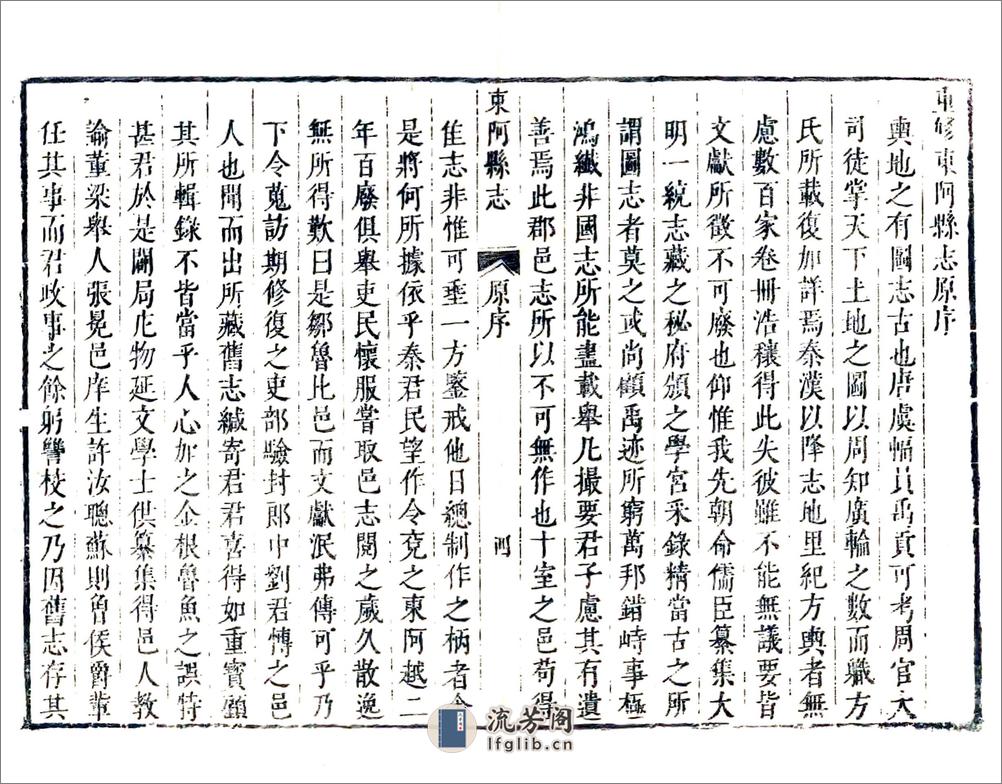 重修東阿縣志原序
輿地之有圖志古也唐虞幅員禹貢可考周官大
司徒掌天下土地之圖以周知廣輪之數而職方
氏所載復加詳焉秦漢以降志地里紀方輿者無
慮數百家卷冊浩穰得此失彼雖不能無議要皆
文獻所徵不可廢也仰惟我先朝命儒臣纂集大
明一統志藏之秘府頒之學宮采錄精當古之所
謂圖志者莫之或尚顧禹迹所窮萬邦錯峙事極
鴻纖非國志所能盡載舉凡撮要君子慮其有遺
善焉此郡邑志所以不可無作也十室之邑苟得
東阿縣志 原序 四
佳志非惟可垂一方鑒戒他日總制作之柄者舍
是將何所據依乎秦君民望作令兗之東阿越二
年百廢俱舉吏民懷服嘗取邑志閱之歲久散逸
無所得歎曰是鄒魯比邑而文獻泯弗傳可乎乃
下令蒐訪期修復之吏部驗封郎中劉君愽之邑
人也聞而出所藏舊志緘寄君君喜得如重寶顧
其所輯錄不皆當乎人心加之金根魯魚之誤特
甚君於是闢局庀物延文學士俱纂集得邑人教
諭董梁舉人張冕邑庠生許汝聰蘇則魯侯爵輩
任其事而君政事之餘躬讐校之乃因舊志存其
流芳阁
lfglib.cn